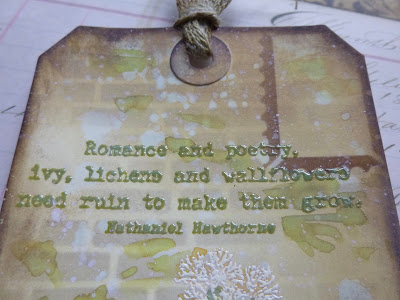 Romance and poetry,
ivy, lichens and wallflowers
need ruin to make them grow.
Nathaniel Hawthorne